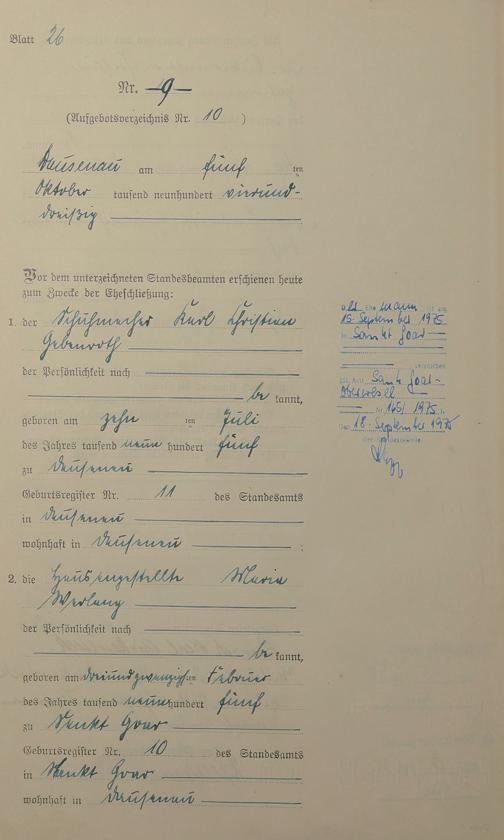 Blatt 26
Nr. 9
(Aufgebotsverzeichnis Nr. 10 )
Dausenau am fünf ten
Oktober tausend neunhundert vierund-
dreißig
Vor dem unterzeichneten Standesbeamten erschienen heute
zum Zwecke der Eheschließung:
1. der Schuhmacher Karl Christian
Gebenroth
der Persönlichkeit nach
be kannt,
geboren am zehn ten Juli
des Jahres tausend neun hundert fünf
zu Dausenau
Geburtsregister Nr. 11 des Standesamts
in Dausenau
wohnhaft in Dausenau ;
2. die Hausangestellte Maria
Werlang
der Persönlichkeit nach
be kannt,
geboren am dreiundzwanzigsten Februar
des Jahres tausend neunhundert fünf
zu Sankt Goar
Geburtsregister Nr. 10 des Standesamts
in Sankt Goar
wohnhaft in Dausenau
Ehemann ist am
15. September 1975
in Sankt Goar
verstorben
Sankt Goar-
Oberwesel
Nr 165/1975
Den 18. September 1975
Der Standesbeamte